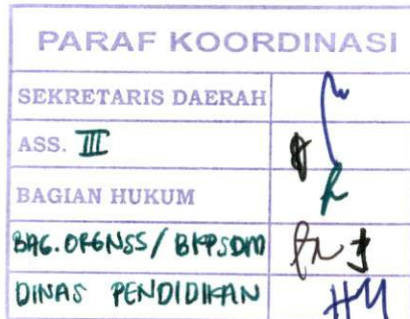 PARAF KOORDINASI
SEKRETARIS DAERAH
ASS. III
BAGIAN HUKUM
BAG. ORGNSS / BKPSDM
DINAS PENDIDIKAN